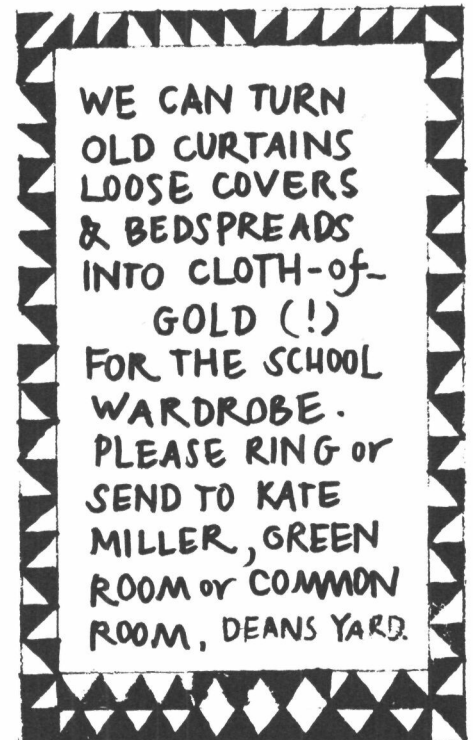 WE CAN TURN
OLD CURTAINS
LOOSE COVERS
& BEDSPREADS
INTO CLOTH-of-
GOLD (!)
FOR THE SCHOOL
WARDROBE.
PLEASE RING or
SEND TO KATE
MILLER, GREEN
ROOM or COMMON
ROOM, DEANS YARD.